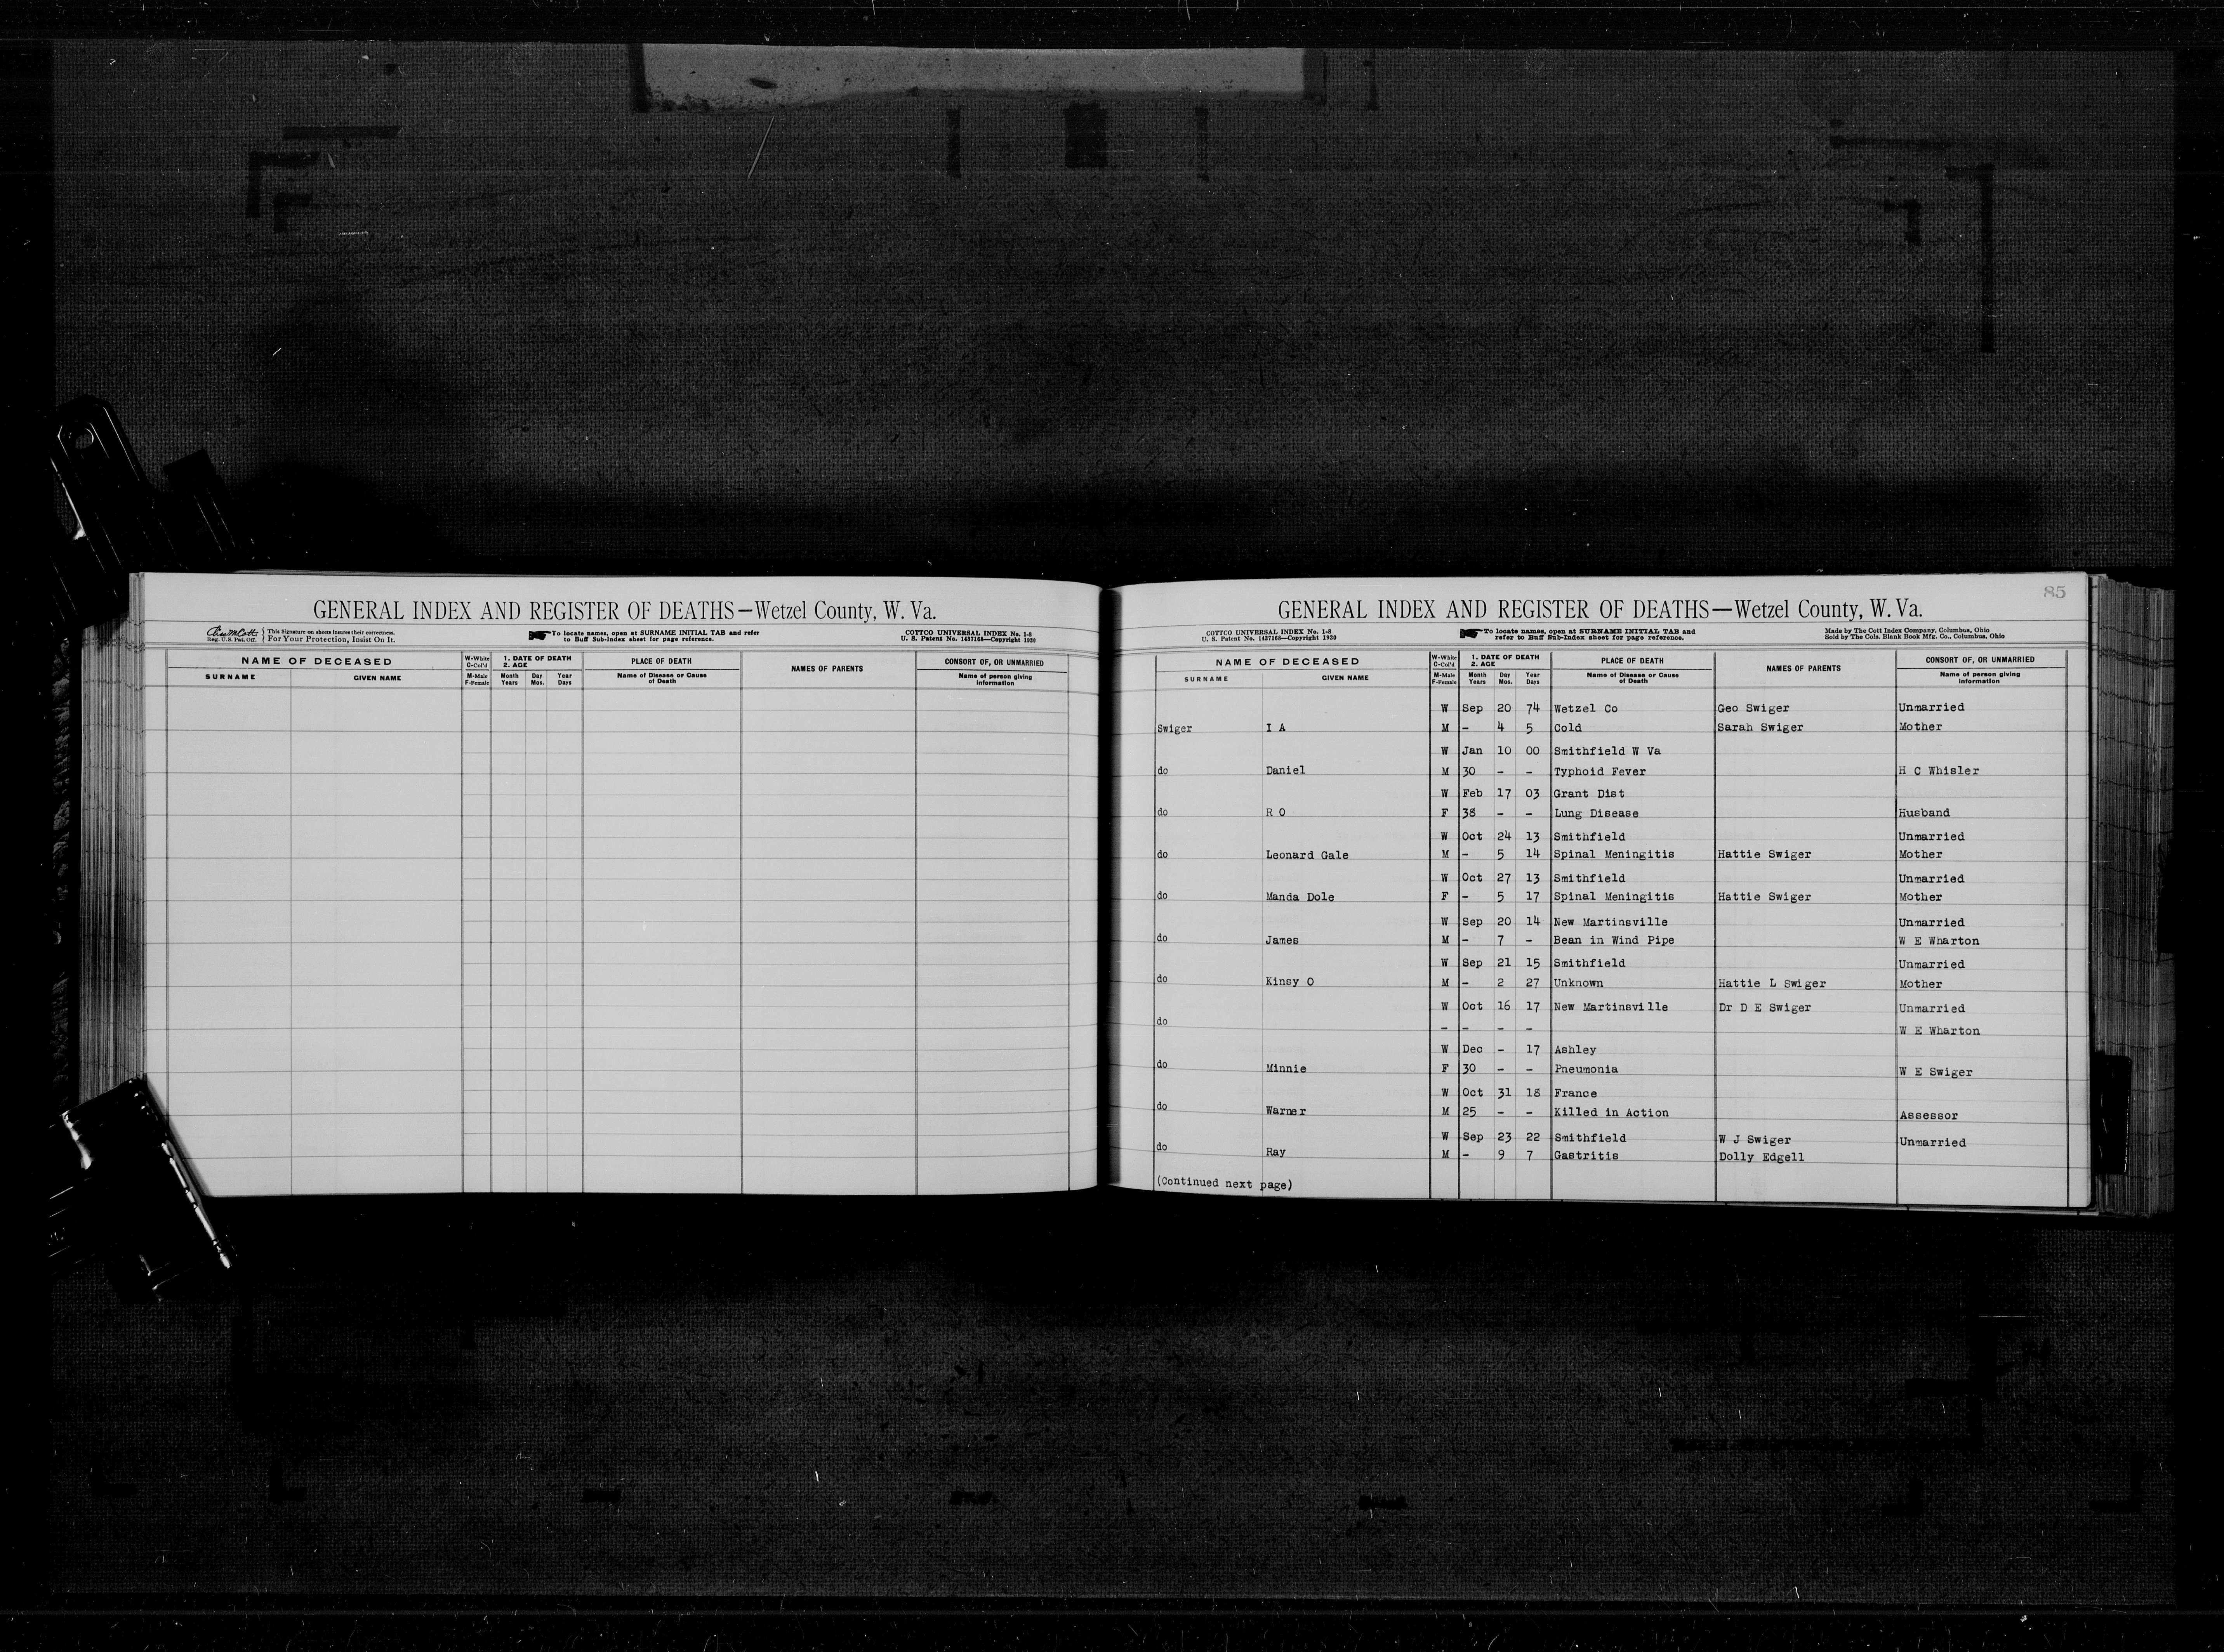 GENERAL INDEX AND REGISTER OF DEATHS—Wetzel County, W. Va.
Reg. U.S. Pat. Off. This Signature on sheets insures their correctness. For Your Protection, Insist On It.
To locate names, open at SURNAME INITIAL TAB and refer to Buff Sub-Index sheet for page reference.
COTTCO UNIVERSAL INDEX No. 1-8
U. S. Patent No. 1437168—Copyright 1920
NAME OF DECEASED W-White C-Col'd 1. DATE OF DEATH 2. AGE PLACE OF DEATH NAMES OF PARENTS CONSORT OF, OR UNMARRIED
SURNAME GIVEN NAME M-Male F-Female Month Years Day Mos. Year Days Name of Disease or Cause of Death Name of person giving information
85
GENERAL INDEX AND REGISTER OF DEATHS—Wetzel County, W. Va.
COTTCO UNIVERSAL INDEX No. 1-8
U. S. Patent No. 1437168—Copyright 1920
To locate names, open at SURNAME INITIAL TAB and refer to Buff Sub-Index sheet for page reference.
Made by The Cott Index Company, Columbus, Ohio
Sold by The Cols. Blank Book Mfg. Co., Columbus, Ohio
NAME OF DECEASED W-White C-Col'd 1. DATE OF DEATH 2. AGE PLACE OF DEATH NAMES OF PARENTS CONSORT OF, OR UNMARRIED
SURNAME GIVEN NAME M-Male F-Female Month Years Day Mos. Year Days Name of Disease or Cause of Death Name of person giving information
W Sep 20 74 Wetzel Co Geo Swiger Unmarried
Swiger I A M - 4 5 Cold Sarah Swiger Mother
W Jan 10 00 Smithfield W Va
do Daniel M 30 - - Typhoid Fever H C Whisler
W Feb 17 03 Grant Dist
do R O F 38 - - Lung Disease Husband
W Oct 24 13 Smithfield Unmarried
do Leonard Gale M - 5 14 Spinal Meningitis Hattie Swiger Mother
W Oct 27 13 Smithfield Unmarried
do Manda Dole F - 5 17 Spinal Meningitis Hattie Swiger Mother
W Sep 20 14 New Martinsville Unmarried
do James M - 7 - Bean in Wind Pipe W E Wharton
W Sep 21 15 Smithfield Unmarried
do Kinsy O M - 2 27 Unknown Hattie L Swiger Mother
W Oct 16 17 New Martinsville Dr D E Swiger Unmarried
do - - - - W E Wharton
W Dec - 17 Ashley
do Minnie F 30 - - Pneumonia W E Swiger
W Oct 31 18 France
do Warner M 25 - - Killed in Action Assessor
W Sep 23 22 Smithfield W J Swiger Unmarried
do Ray M - 9 7 Gastritis Dolly Edgell
(Continued next page)